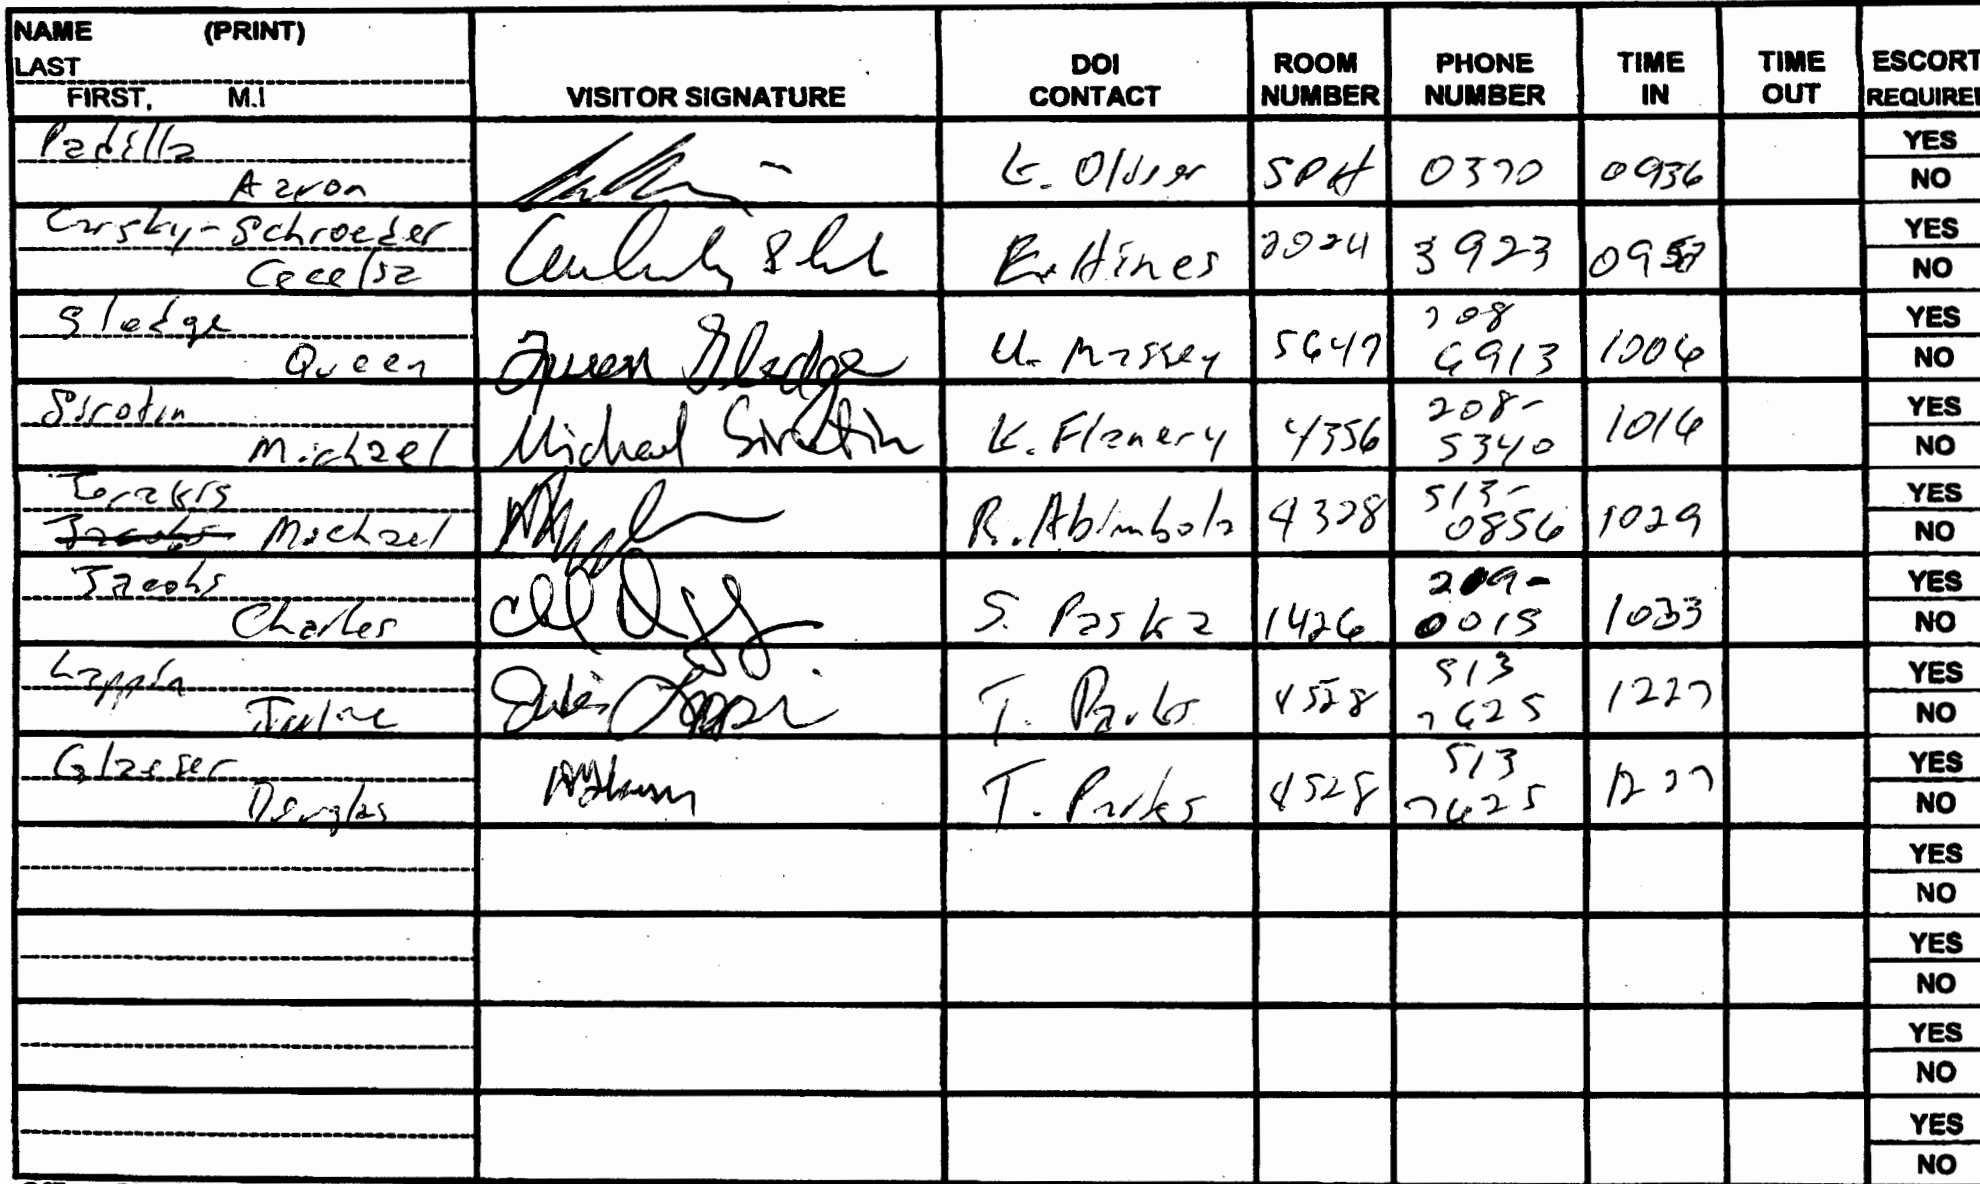 NAME (PRINT)
LAST
FIRST, M.I
VISITOR SIGNATURE
DOI
CONTACT
ROOM
NUMBER
PHONE
NUMBER
TIME
IN
TIME
OUT
ESCORT
REQUIRED
Padilla
Aaron
0370 0936
YES
NO
Carsky-Schroeder
Cecelia
E. Hines 2024 3923
YES
NO
Sledge
Queen
Queen Sledge
U. Massey 5647
208
6913
1006
YES
NO
Sirotin
Michael
Michael Sirotin
K. Flanery 4356
208-
5340
1016
YES
NO
Michael
R. Abimbola 4328
513-
0856
1029
YES
NO
Jacobs
Charles
S. Paska 1426
0015
1033
YES
NO
Lappin
Julie
T. Parks 4528
513
7625
1227
YES
NO
Glaeser
Douglas
T. Parks 4528
513
7625
1227
YES
NO
YES
NO
YES
NO
YES
NO
YES
NO